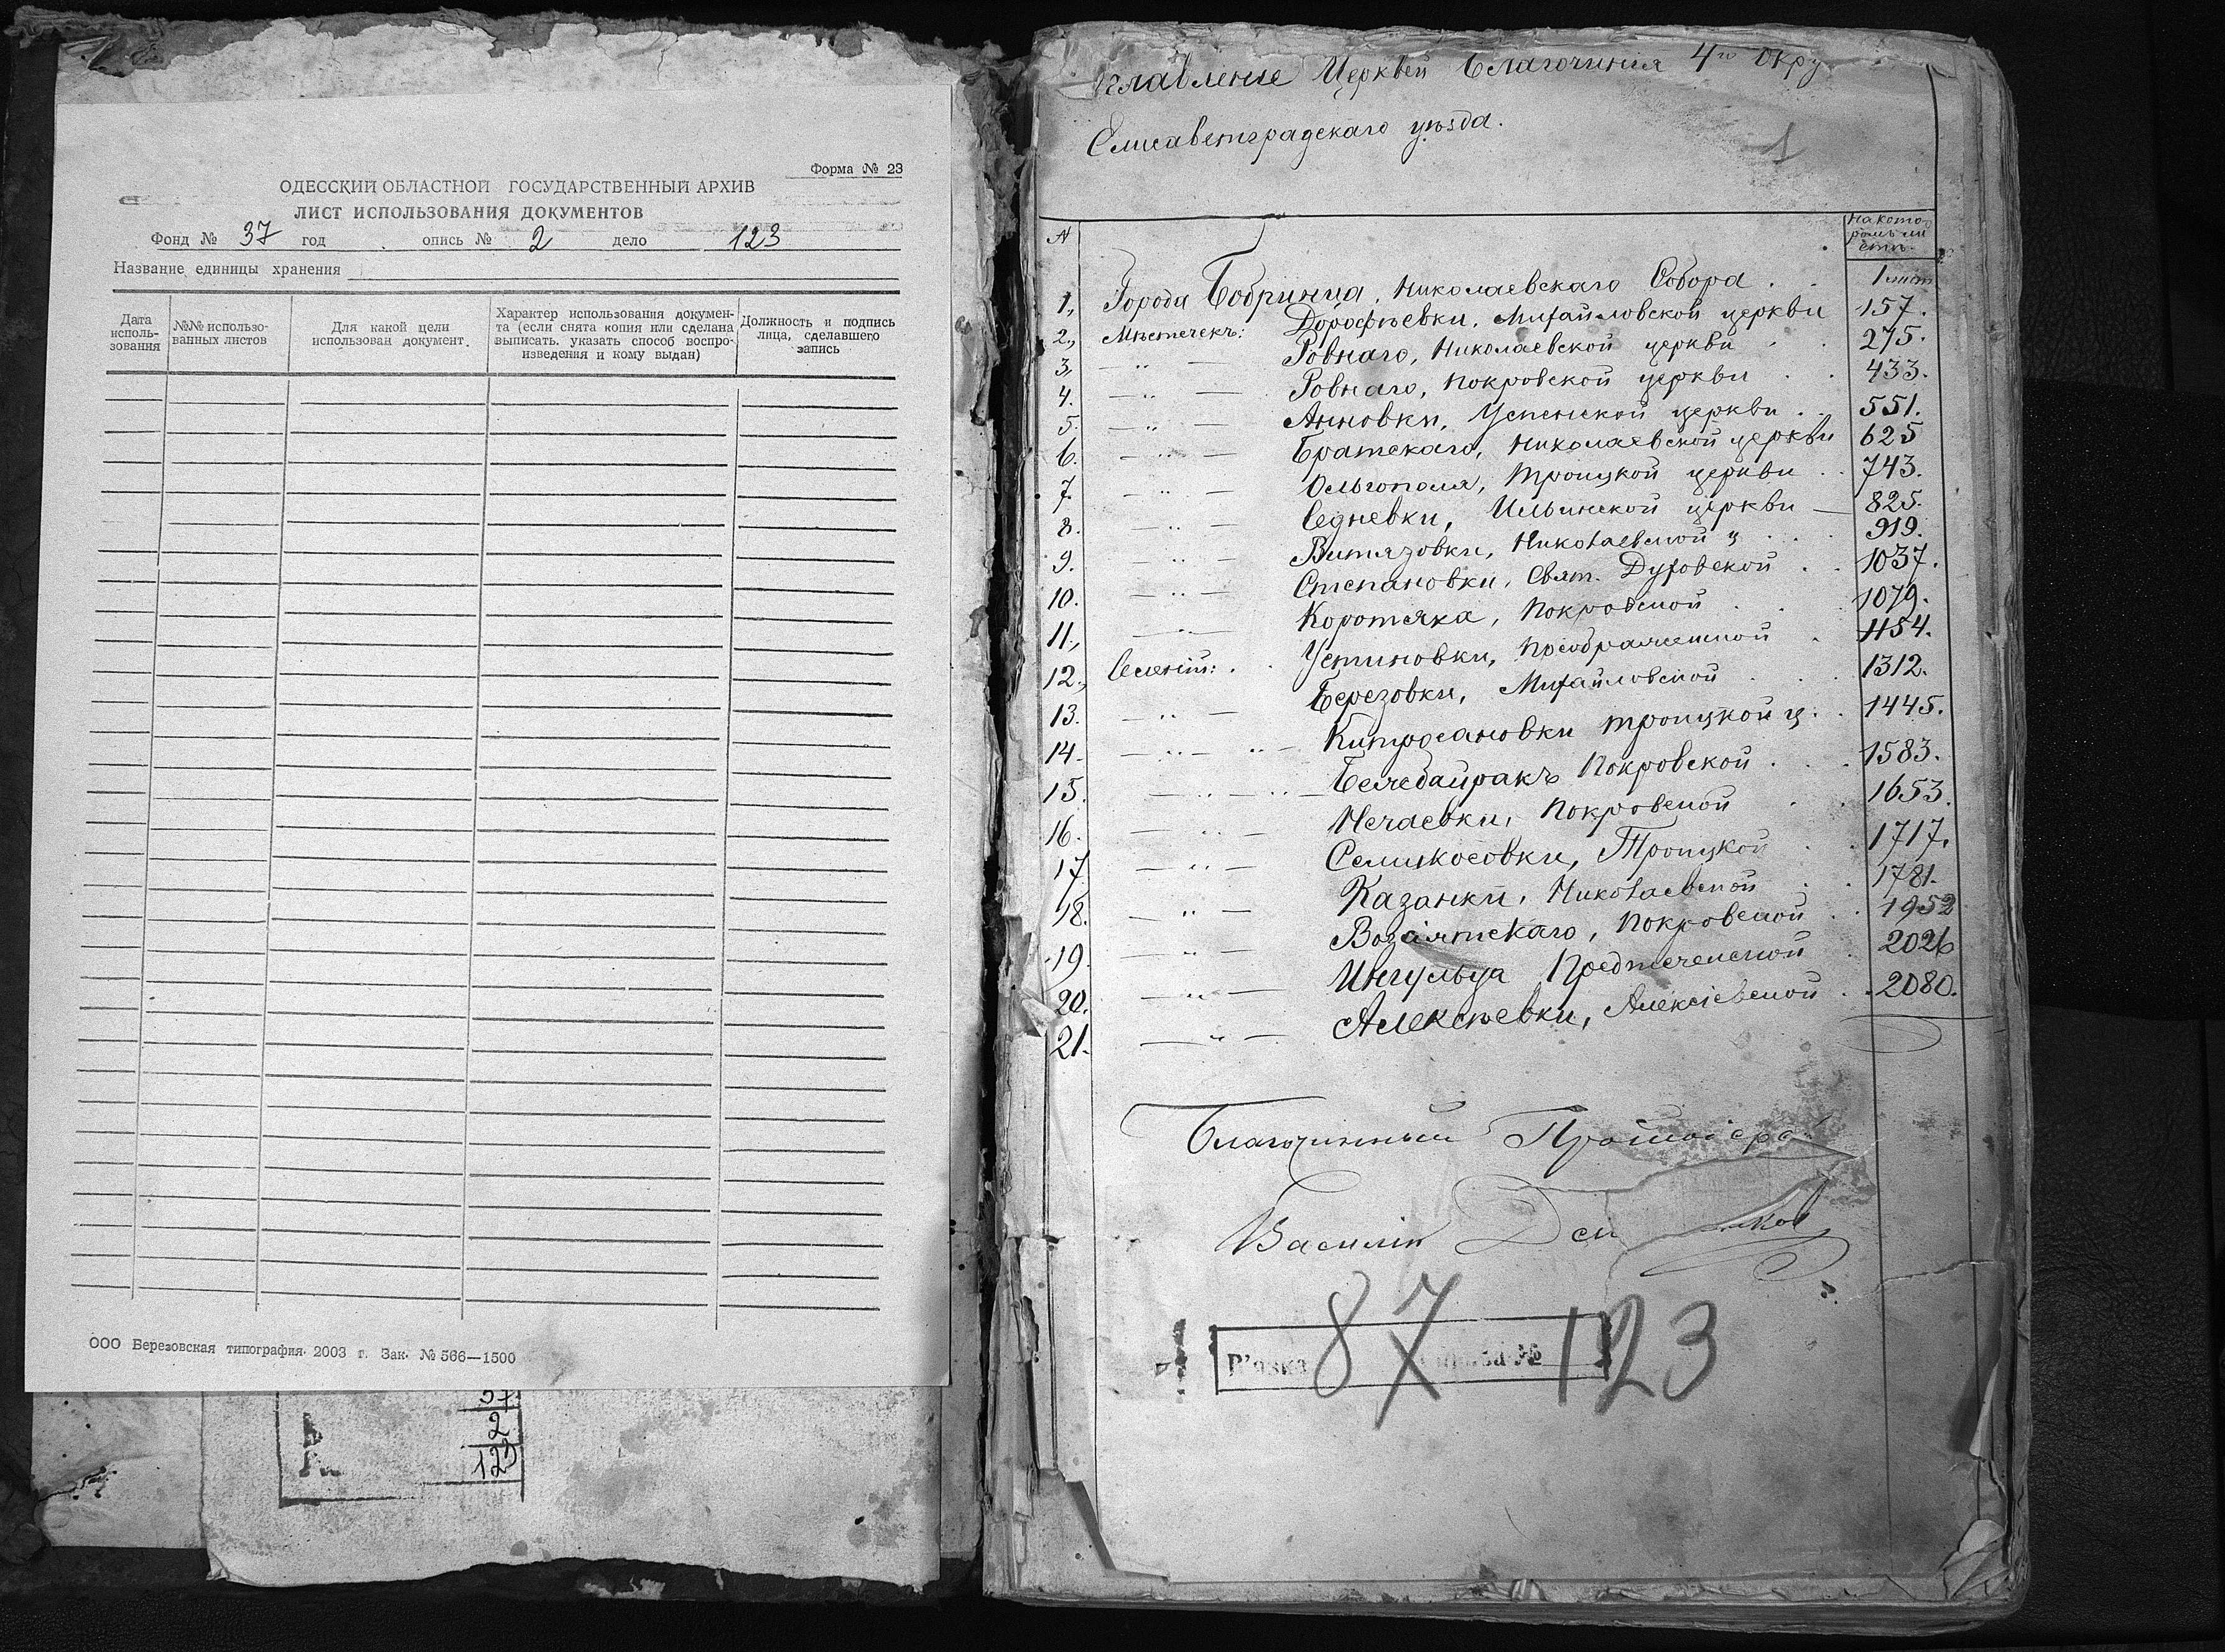 Форма № 23
ОДЕССКИЙ ОБЛАСТНОЙ ГОСУДАРСТВЕННЫЙ АРХИВ
ЛИСТ ИСПОЛЬЗОВАНИЯ ДОКУМЕНТОВ
Фонд № 37 год опись № 2 дело 123
Название единицы хранения
Дата исполь-зования
№№ использо-ванных листов
Для какой цели использован документ.
Характер использования докумен-та (если снята копия или сделана выписать. указать способ воспро-изведения и кому выдан)
Должность и подпись лица, сделавшего запись
ООО Березовская типография. 2003 г. Зак. № 566—1500
37
2
123
главление Церквей Благочиния 4го Окру
Елисаветградскаго уѣзда.
1
№ На кото-ромъ ли-стѣ.
1., Города Бобринца, Николаевскаго Собора . . 1 лист
2., Мѣстечекъ: Дорофѣевки, Михайловской церкви 157.
3. — „ — Ровнаго, Николаевской церкви . . 275.
4. — „ — Ровнаго, Покровской церкви . . 433.
5. — „ — Анновки, Успенской церкви . . 551.
6. — „ — Братскаго, Николаевской церкви 625
7. — „ — Ольгополя, Троицкой церкви . . 743.
8. — „ — Седневки, Ильинской церкви — 825.
9. — „ — Витязовки, Николаевской ц . . . 919.
10. — „ — Степановки, Свят. Духовской . . 1037.
11., — „ — Коротяка, Покровской . . . 1079.
12., Селеній: . . Устиновки, Преображенской . 1154.
13. — „ — Березовки, Михайловской . . . 1312.
14. — „ — Китросановки Троицкой ц. . 1445.
15. — „ — Бешебайракъ Покровской . . . 1583.
16. — „ — Нечаевки, Покровской . . 1653.
17. — „ — Семикосовки, Троицкой . . 1717.
18. — „ — Казанки, Николаевской . . 1781.
19. — „ — Возсіятскаго, Покровской . . 1952
20. — „ — Ингульца Предтеченской . 2026
21. — „ — Алексѣевки, Алексіевской . . 2080.
Благочинный Протоіерей
Василій
87 123